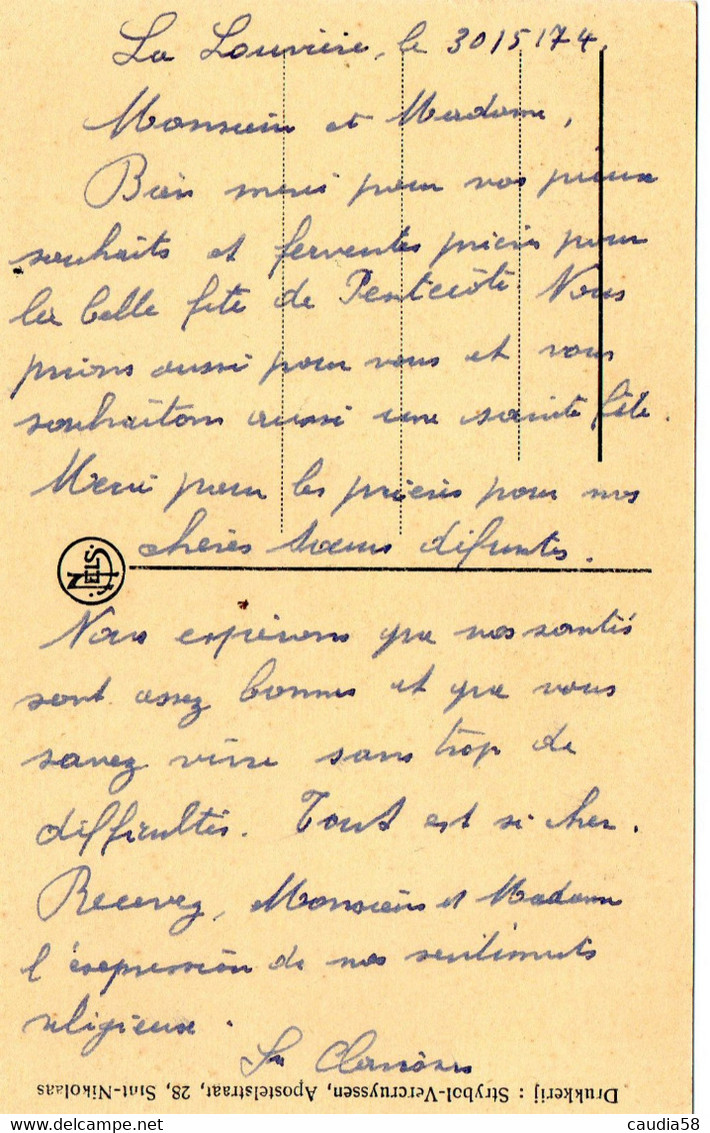 La Louvière, le 30/5/74.
Monsieur et Madame,
Bien merci pour vos pieux
souhaits et ferventes prières pour
la belle fête de Pentecôte Nous
prions aussi pour vous et vous
souhaitons aussi une sainte fête.
Merci pour les prières pour nos
chères Sœurs défuntes.
NELS
Nous espérons que vos santés
sont assez bonnes et que vous
savez vivre sans trop de
difficultés. Tout est si cher.
Recevez, Monsieur et Madame
l'expression de nos sentiments
religieux.
Sr
Drukkerij : Strybol-Vercruyssen, Apostelstraat, 28, Sint-Nikolaas
caudia58